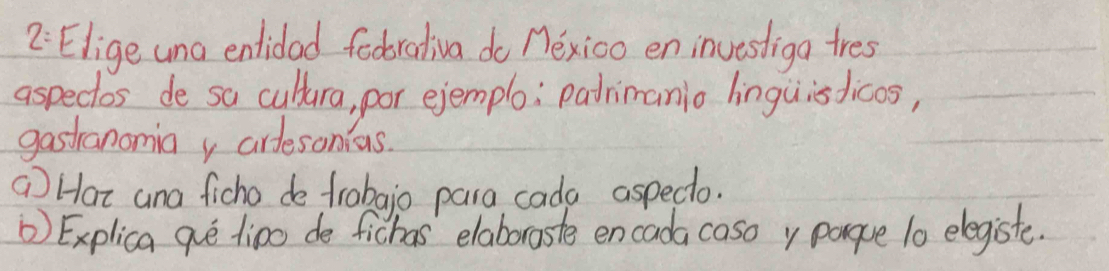 2: Elige una entidad federativa de México en investiga tres
aspectos de su cultura, por ejemplo: patrimanio lingüisticos,
gastranomia y artesanías.
a) Haz una ficha de trabajo para cada aspecto.
b) Explica qué tipo de fichas elaboraste en cada caso y porque lo elegiste.